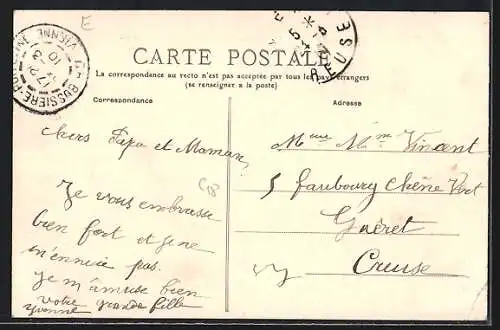 E
BUSSIÈRE-POITEVINE
VIENNE
CREUSE
CARTE POSTALE
La correspondance au recto n'est pas acceptée par tous les pays étrangers
(se renseigner à la poste)
Correspondance
Adresse
chers Papa et Maman,
Je vous embrasse
bien fort et je ne
m'ennuie pas.
Je m'amuse bien
votre grande fille
Yvonne
Vincent
5 faubourg Chêne Vert
Guéret
Creuse